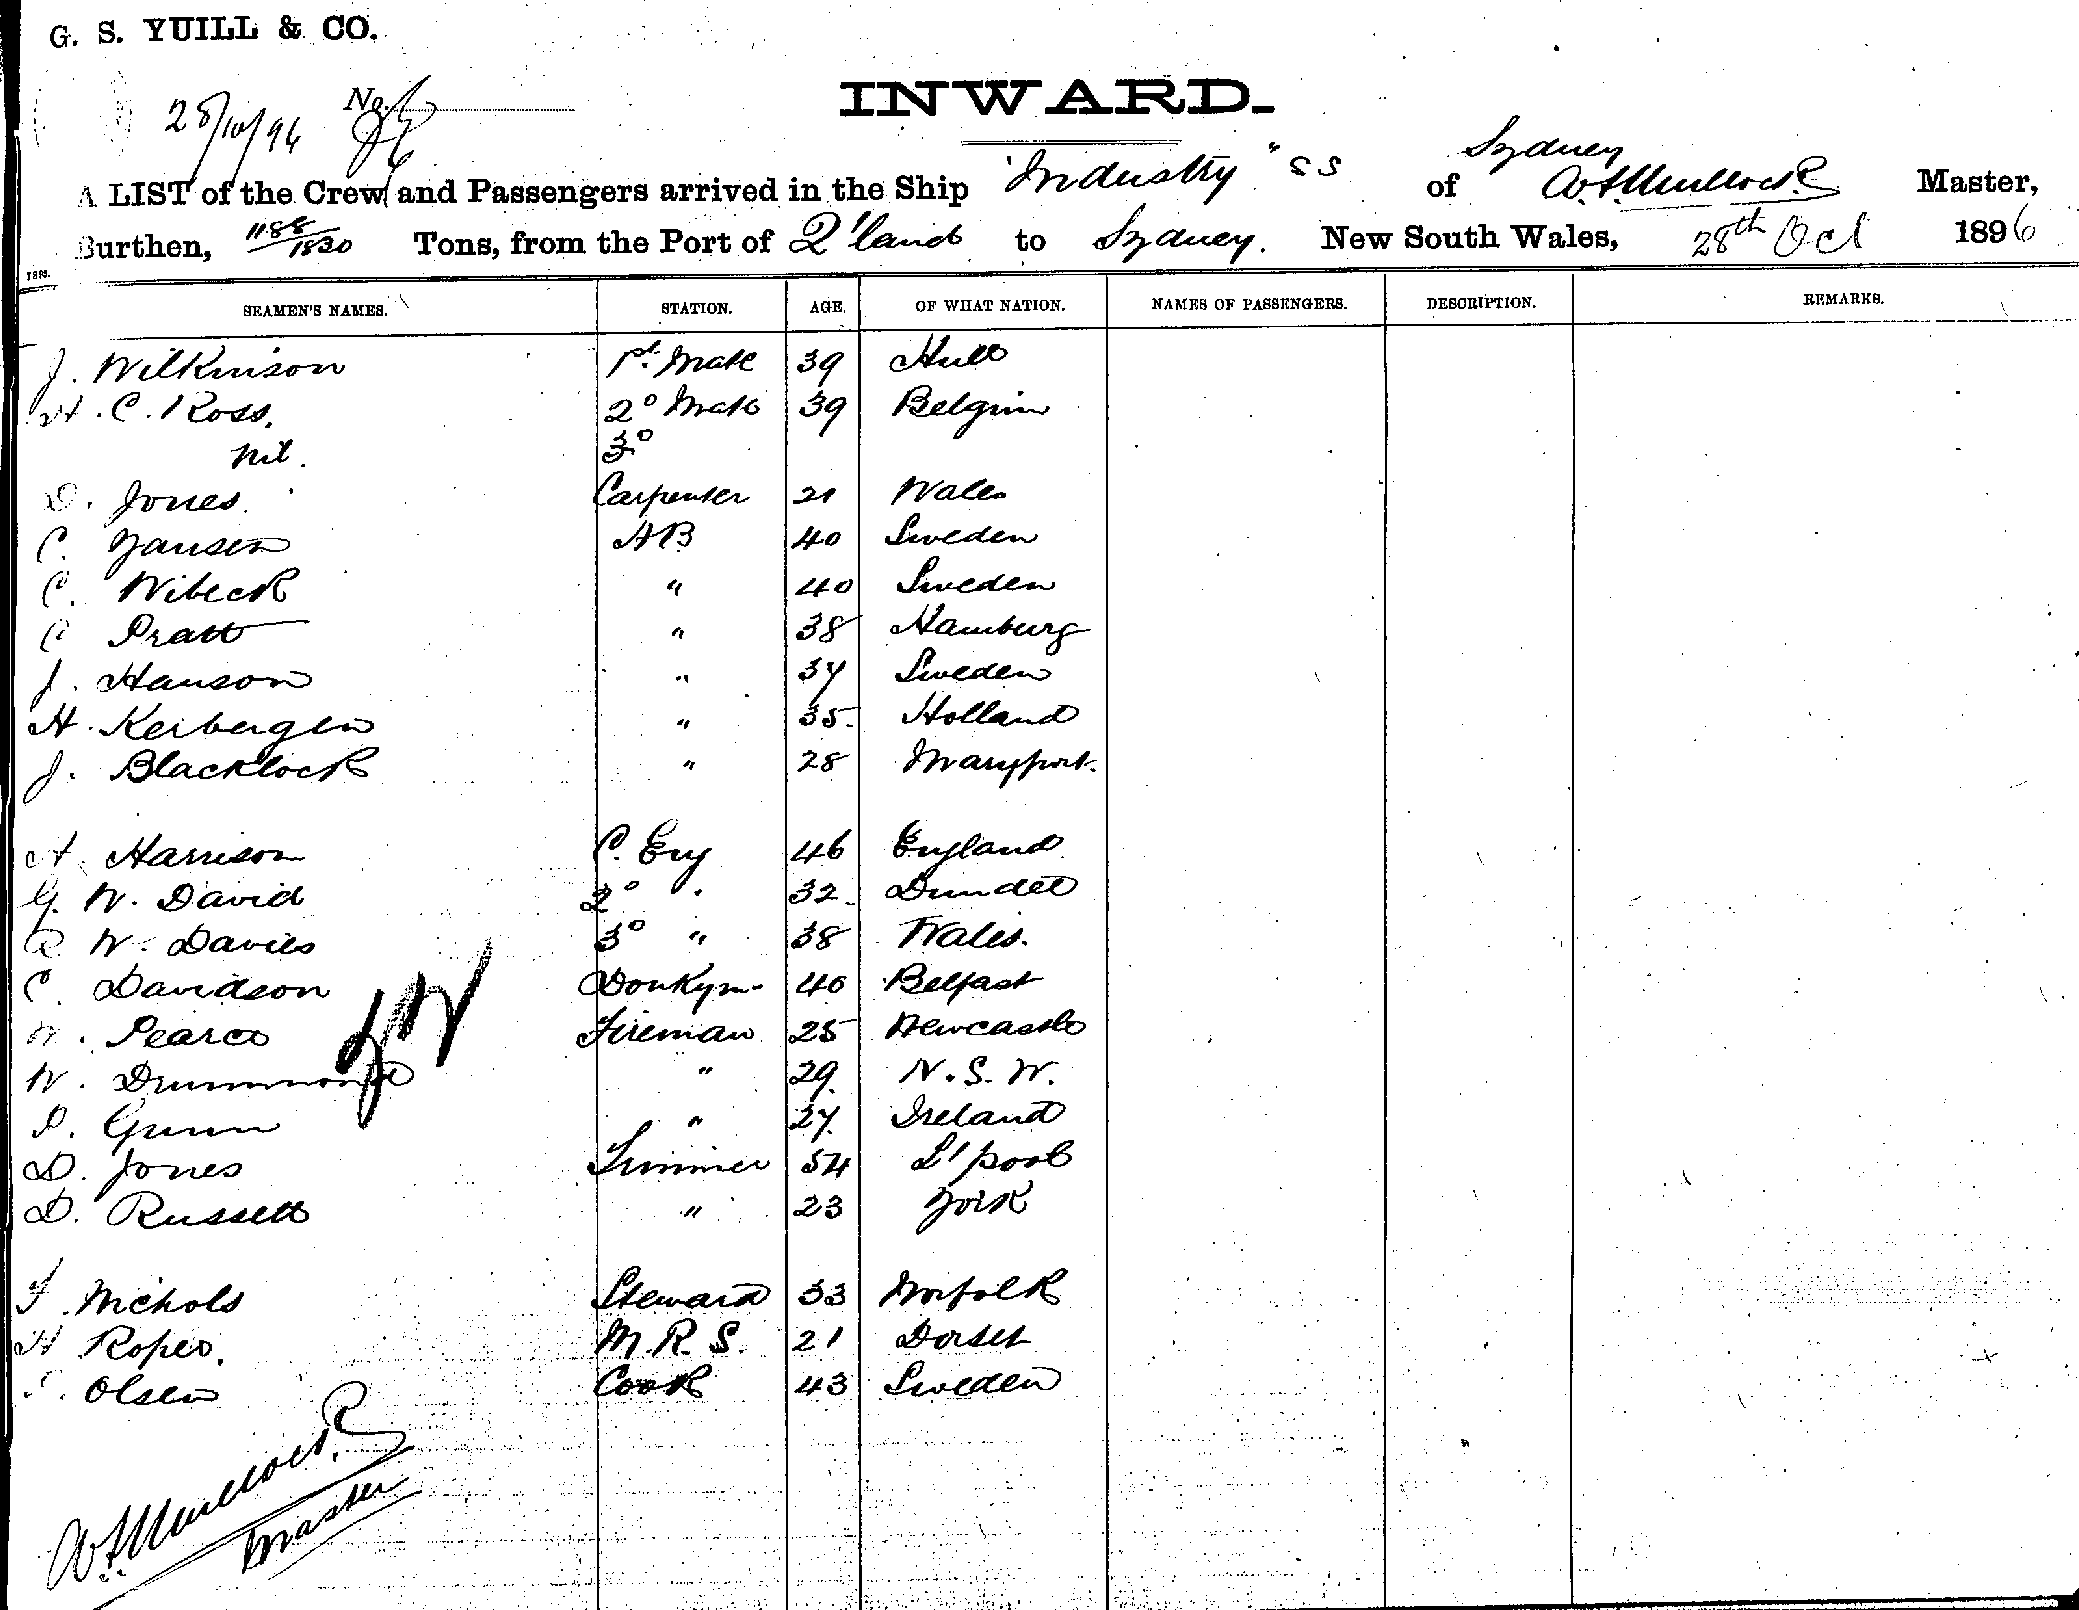 G. S. YUILL & CO.
28/10/96 No.
INWARD.
Sydney
A LIST of the Crew and Passengers arrived in the Ship "Industry" SS of Master,
Burthen, 1188/1830 Tons, from the Port of Q'land to Sydney. New South Wales, 28th Oct 1896
SEAMEN'S NAMES. STATION. AGE. OF WHAT NATION. NAMES OF PASSENGERS. DESCRIPTION. REMARKS.
J. Wilkinson 1st Mate 39 Hull
H. C. Ross. 2º Mate 39 Belgium
Nil. 3º
D. Jones. Carpenter 21 Wales
C. Jansen AB 40 Sweden
C. Wibeck " 40 Sweden
C Pratt " 38 Hamburg
J. Hanson " 34 Sweden
H. Kerbergen " 35. Holland
J. Blacklock " 28 Maryport.
A. Harrison C. Eng 46 England
G. W. David 2º " 32. Dundee
R W. Davies 3º " 38 Wales.
C. Davidson Donkym 40 Belfast
W. Pearce Fireman 25 Newcastle
W. Drummond " 29. N.S.W.
P. Gunn " 27. Ireland
D. Jones Trimmer 54 L'pool
D. Russell " 23 York
F. Nichols Steward 33 Norfolk
H Roper. M.R.S. 21 Dorset
Olsen Cook 43 Sweden
Master